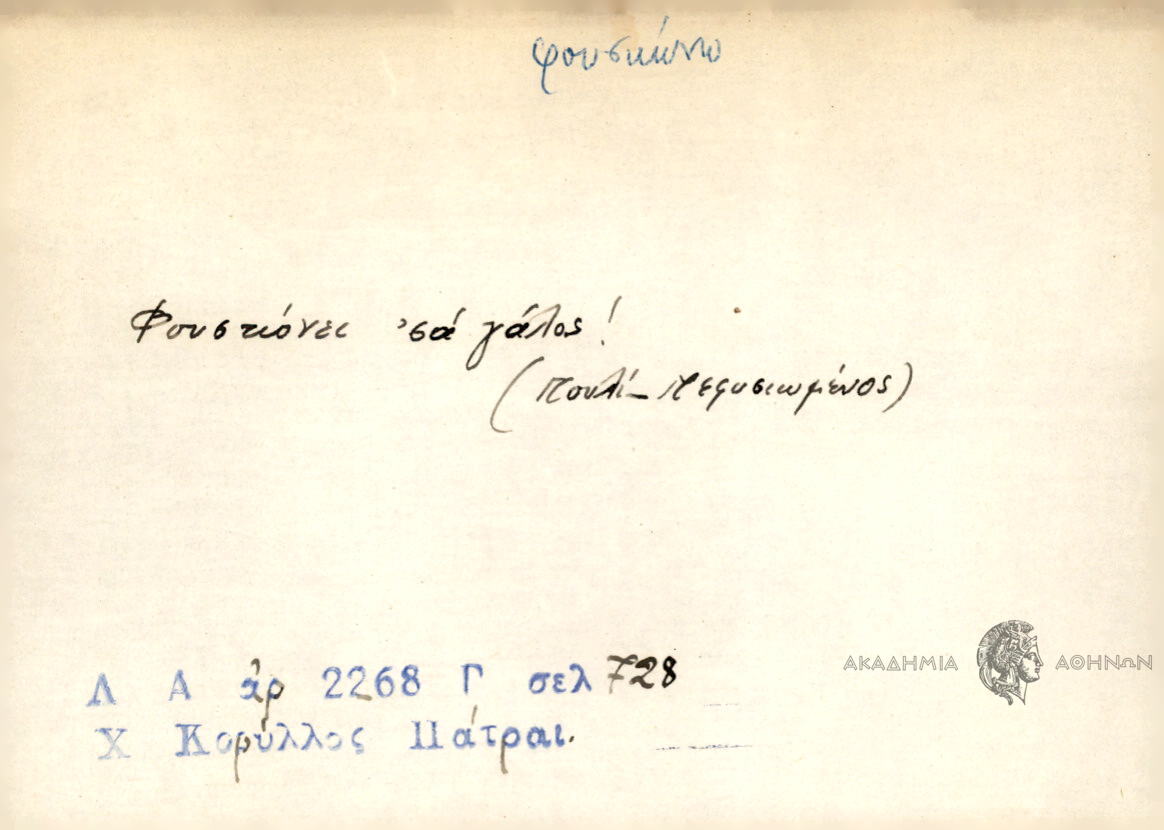 φουσκώνω
Φουσκώνει 'σά γάλος!
(Πουλί_ Πεφυσιωμένος)
Λ Α ἀρ 2268 Γ σελ 728
Χ Κορύλλος Πάτραι.
ΑΚΑΔΗΜΙΑ ΑΘΗΝΩΝ